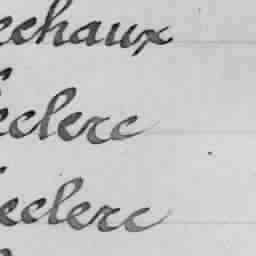 echaux
eclerc
eclerc